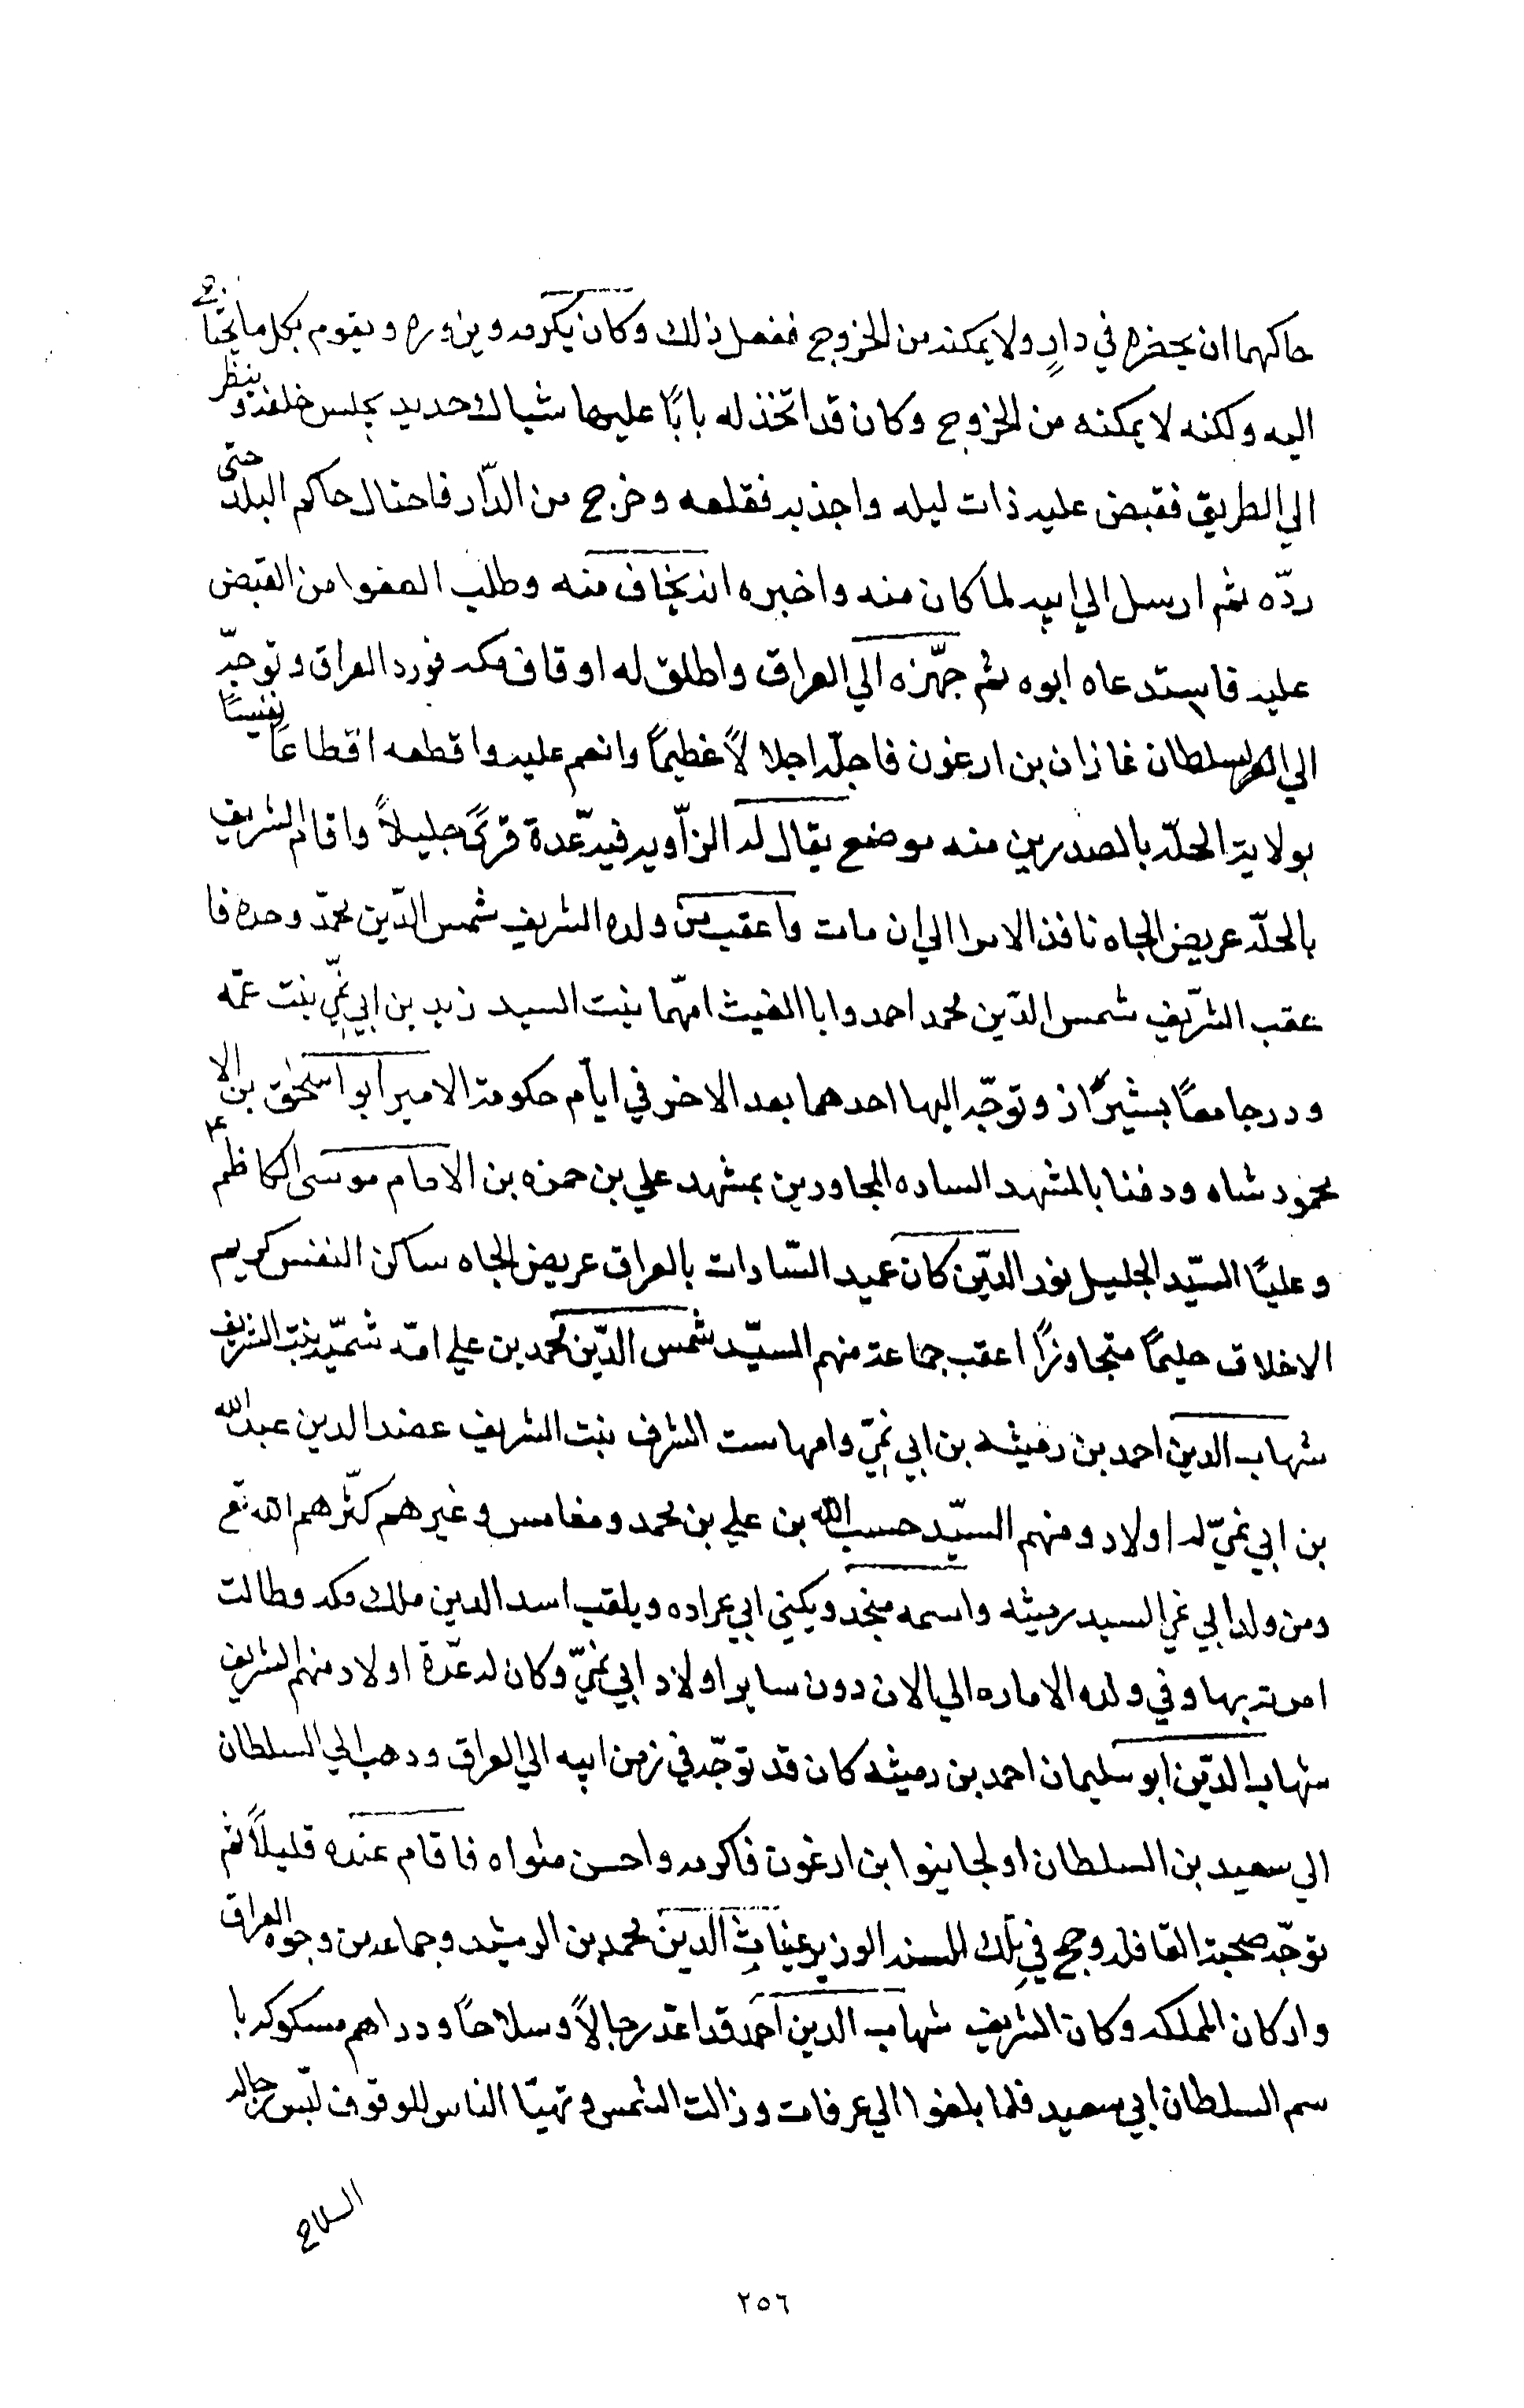 حاكمها ان يحضره في دارٍ ولا يمكنه من الخروج ففعل ذلك وكان يكرمه ويزوره ويقوم بكل ما يحتاج
اليه ولكنه لا يمكنه من الخروج وكان قد اتخذ له بابًا عليها شباك حديد يجلس خلفه وينظر
الي الطريق فقبض عليه ذات ليله واجذبه فقلعه وخرج من الدّار فاحتال حاكم البلد حتى
ردّه ثم ارسل الي ابيه لما كان منه واخبره انه يخاف منه وطلب العفوا من القبض
عليه فاستدعاه ابوه ثم جهّزه الي العراق واطلق له اوقاف مكه فورد العراق وتوجّه
الي السلطان غازان بن ارغون فاجلّه اجلالاً عظيمًا وانعم عليه واقطعه اقطاعًا نفيسًا
بولاية الحلّه بالصدرين منه موضع يقال له الزاويه فيه عدة قرىً جليلاً واقام الشريف
بالحلّه عريض الجاه نافذ الامرا الي ان مات واعقب من ولده الشريف شمس الدّين محمّد وحده فا
عقب الشّريف شمس الدّين محمد احمد وابا الغيث امّهما بنت السيد زيد بن ابي نميّ بنت عمّه
ودرجا معًا بشيراز وتوجّه اليها احدهما بعد الاخر في ايّام حكومة الامير ابو اسحٰق بن الا
محمود شاه ودفنا بالمشهد الساده المجاورين بمشهد علي بن حمزه بن الامام موسى الكاظم ع
وعليًا السيّد الجليل نور الدّين كان عميد السّادات بالعراق عريض الجاه ساكن النفس كريم
الاخلاق حليمًا متجاوزًا اعقب جماعة منهم السيّد شمس الدّين محمد بن علي امّه شميّه بنت الشريف
شهاب الدين احمد بن رميثه بن ابي نميّ وامها ست الشرف بنت الشريف عضد الدين عبد الله
بن ابي نميّ له اولاد ومنهم السيّد حسب الله بن علي بن محمد ومغامس وغيرهم كثّرهم الله تع
ومن ولد ابي نمي السيد رميثه واسمه منجد ويكني ابي عراده ويلقب اسد الدين ملك مكه وطالت
امرته بها وفي ولده الاماره الي الان دون ساير اولاد ابي نميّ وكان له عدّة اولاد منهم الشريف
شهاب الدّين ابو سليمان احمد بن رميثه كان قد توجّه في زمن ابيه الي العراق وذهب الي السلطان
ابي سعيد بن السلطان اولجايتوا ابن ارغون فاكرمه واحسن مثواه فاقام عنده قليلاً ثم
توجّه صحبة القافله وحج في تلك السنه الوزير غياث الدين محمد بن الرشيد وجماعه من وجوه العراق
واركان المملكه وكان الشريف شهاب الدين احمد قد اعتد رجالاً وسلاحًا ودراهم مسكوكه با
سم السلطان ابي سعيد فلما بلغوا الي عرفات وزالت الشمس وتهيّا الناس للوقوف لبّس رجاله
السلاح
٢٥٦